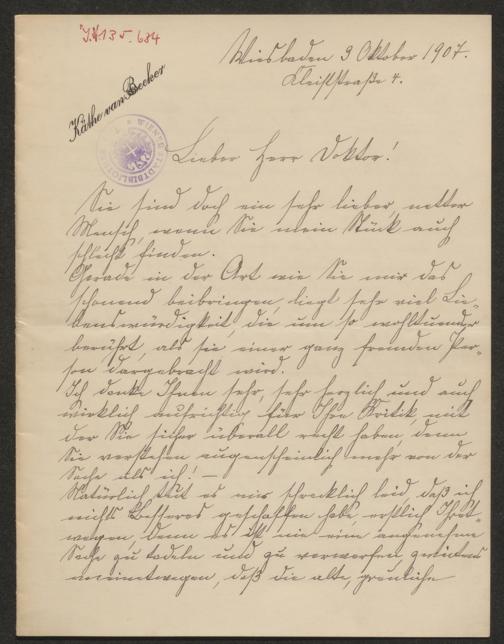 I.N. 135.684
Wiesbaden 9 Oktober 1907.
Kleiststraße 4.
Käthe van Becker
WIENER STADTBIBLIOTHEK
Lieber Herr Doktor!
Sie sind doch ein sehr lieber, netter
Mensch, wenn Sie mein Stück auch
schlecht finden.
Gerade in der Art wie Sie mir das
schonend beibringen, liegt sehr viel Lie-
benswürdigkeit, die um so wohltuender
berührt, als sie einer ganz fremden Per-
son dargebracht wird.
Ich danke Ihnen sehr, sehr herzlich und auch
wirklich aufrichtig für Ihre Kritik, mit
der Sie sicher überall recht haben, denn
Sie verstehen augenscheinlich mehr von der
Sache als ich! —
Natürlich tut es mir schrecklich leid, daß ich
nichts Besseres geschaffen habe, erstlich Ihret-
wegen, denn es ist nie eine angenehme
Sache zu tadeln und zu verwerfen, zweitens
meinetwegen, daß die alte, greuliche